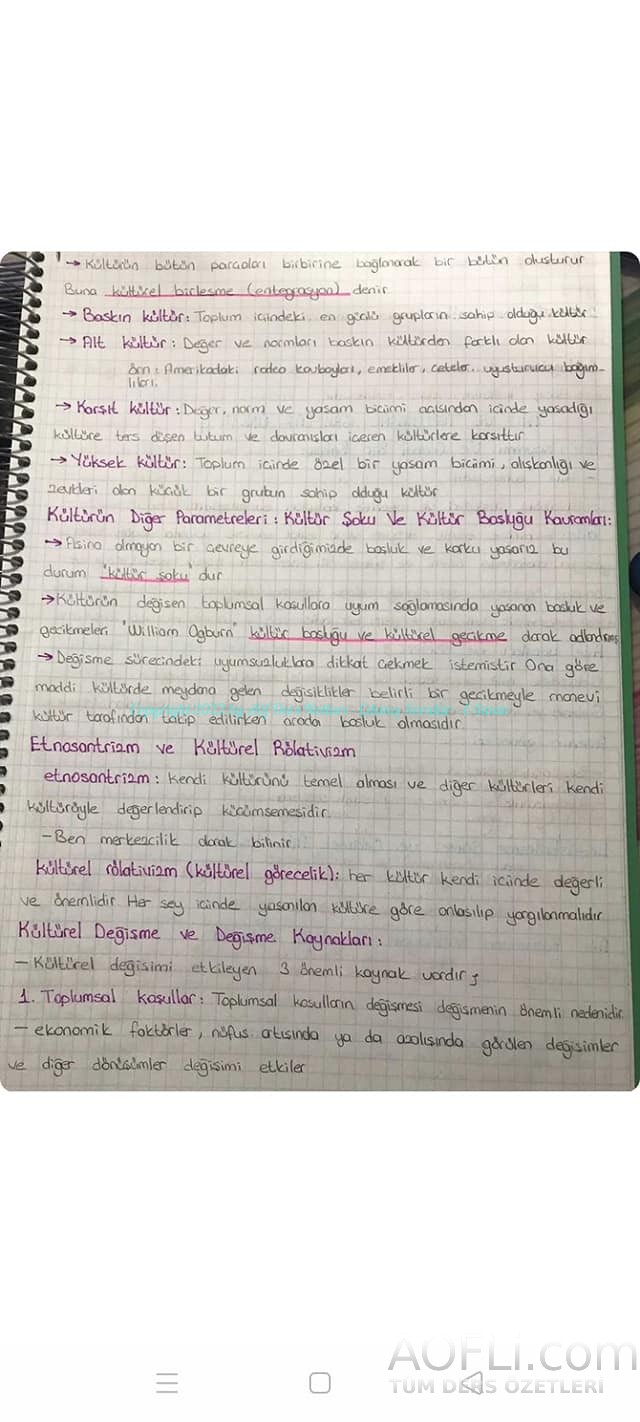 → Kültürün bütün parçaları birbirine bağlanarak bir bütün oluşturur
Buna kültürel birleşme (entegrasyon) denir
→ Baskın kültür: Toplum içindeki en güçlü grupların sahip olduğu kültür
→ Alt kültür: Değer ve normları baskın kültürden farklı olan kültür
örn: Amerikadaki rodeo kovboyları, emekliler, çeteler, uyuşturucu bağım-
lıları.
→ Karşıt kültür: Değer, norm ve yaşam biçimi açısından içinde yaşadığı
kültüre ters düşen tutum ve davranışları içeren kültürlere karşıttır
→ Yüksek kültür: Toplum içinde özel bir yaşam biçimi, alışkanlığı ve
zevkleri olan küçük bir grubun sahip olduğu kültür
Kültürün Diğer Parametreleri: Kültür Şoku Ve Kültür Boşluğu Kavramları:
→ Aşina olmayan bir çevreye girdiğimizde boşluk ve korku yaşarız bu
durum "kültür şoku" dur
→ Kültürün değişen toplumsal koşullara uyum sağlamasında yaşanan boşluk ve
gecikmeleri "William Ogburn" kültür boşluğu ve kültürel gecikme olarak adlandırmış
→ Değişme sürecindeki uyumsuzluklara dikkat çekmek istemiştir Ona göre
maddi kültürde meydana gelen değişiklikler belirli bir gecikmeyle manevi
kültür tarafından takip edilirken arada boşluk olmasıdır.
Etnosantrizm ve Kültürel Rölativizm
etnosantrizm: Kendi kültürünü temel alması ve diğer kültürleri kendi
kültürüyle değerlendirip küçümsemesidir.
- Ben merkezcilik olarak bilinir
Kültürel rölativizm (kültürel görecelik): her kültür kendi içinde değerli
ve önemlidir Her şey içinde yaşanılan kültüre göre anlaşılıp yargılanmalıdır
Kültürel Değişme ve Değişme Kaynakları:
- Kültürel değişimi etkileyen 3 önemli kaynak vardır ;
1. Toplumsal koşullar: Toplumsal koşulların değişmesi değişmenin önemli nedenidir
- ekonomik faktörler, nüfus artışında ya da azalışında görülen değişimler
ve diğer dönüşümler değişimi etkiler
AOFLi.com
TÜM DERS ÖZETLERİ